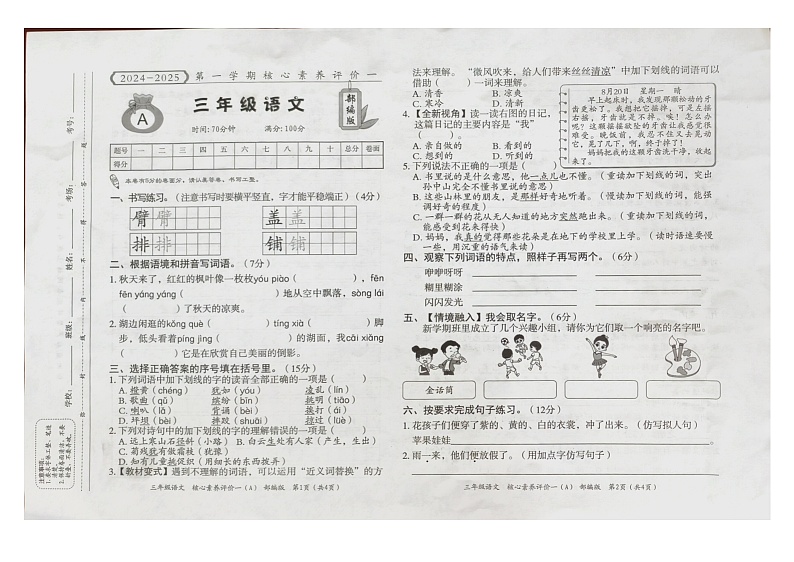 2024-2025 第一学期核心素养评价一
A
三年级语文
部编版
时间:70分钟 满分:100分
题号 一 二 三 四 五 六 七 八 九 十 总分 卷面
得分
本卷有5分的卷面分,请认真答卷,书写工整。
一、书写练习。(注意书写时要横平竖直,字才能平稳端正)(4分)
臂 盖
排 铺
二、根据语境和拼音写词语。(7分)
1.秋天来了,红红的枫叶像一枚枚yóu piào( ),fēn
fēn yáng yáng( )地从空中飘落,sòng lái
( )了秋天的凉爽。
2.湖边闲逛的kǒng què( )tíng xià( )脚
步,低头看着píng jìng( )的湖面,我cāi
( )它是在欣赏自己美丽的倒影。
三、选择正确答案的序号填在括号里。(15分)
1.下列词语中加下划线的字的读音全部正确的一项是( )
A.橙黄(chéng) 犹如(yóu) 凌乱(lín)
B.歌曲(qǔ) 缤纷(bīn) 挑明(tiǎo)
C.喇叭(lǎ) 背诵(bèi) 挨打(ái)
D.坪坝(bèi) 摔跤(shuāi) 掠过(lüè)
2.下列对诗句中的加下划线的字的理解错误的一项是( )
A.远上寒山石径斜(小路) B.白云生处有人家(产生,生出)
C.菊残犹有傲霜枝(犹豫)
D.知有儿童挑促织(用细长的东西拨弄)
3.【教材变式】遇到不理解的词语,可以运用“近义词替换”的方
三年级语文 核心素养评价一(A) 部编版 第1页(共4页)
法来理解。“微风吹来,给人们带来丝丝清凉”中加下划线的词语可以
借助( )来理解。
A.清香 B.凉爽
C.寒冷 D.清新
4.【全新视角】读一读右图的日记,
这篇日记的主要内容是“我”
( )
A.亲自做的 B.看到的
C.想到的 D.听到的
8月20日 星期一 晴
早上起床时,我发现那颗松动的牙
齿更松了。我想把它摇掉,可是左摇
右摇,牙齿就是不掉。唉!怎么办
呢?这颗摇摇欲坠的牙齿让我感觉很
难受。晚饭前,我忍不住又去晃动
它,晃了几下,啊,终于掉了!
妈妈把我的这颗牙齿洗干净,收起
来了。
5.下列说法不正确的一项是( )
A.书里说的是什么意思,他一点儿也不懂。(重读加下划线的词,突出
孙中山完全不懂书里说的意思)
B.这些山林里的朋友,是那样好奇地听着。(慢读加下划线的词,能强
调好奇的程度)
C.一群一群的花从无人知道的地方突然跑出来。(重读加下划线的词,
能感受到花来得快)
D.妈妈,我真的觉得那些花朵是在地下的学校里上学。(读时语速要慢
一些,用沉重的语气来读)
四、观察下列词语的特点,照样子再写两个。(6分)
咿咿呀呀
糊里糊涂
闪闪发光
五、【情境融入】我会取名字。(6分)
新学期班里成立了几个兴趣小组,请你为它们取一个响亮的名字吧。
金话筒
六、按要求完成句子练习。(12分)
1.花孩子们便穿了紫的、黄的、白的衣裳,冲了出来。(仿写拟人句)
苹果娃娃
2.雨一来,他们便放假了。(用加点字仿写句子)
三年级语文 核心素养评价一(A) 部编版 第2页(共4页)
考号:
考场:
姓名:
班级:
学校: